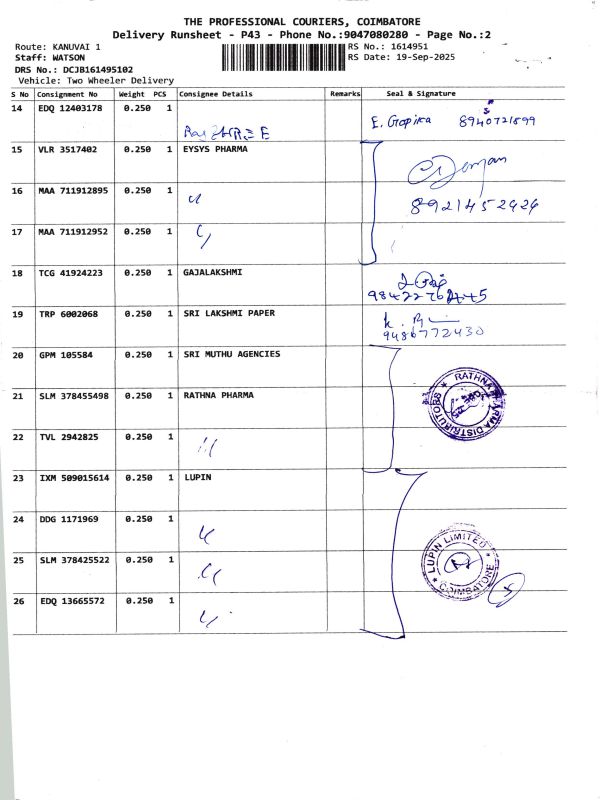 THE PROFESSIONAL COURIERS, COIMBATORE
Delivery Runsheet - P43 - Phone No.:9047080280 - Page No.:2
Route: KANUVAI 1
RS No.: 1614951
Staff: WATSON
RS Date: 19-Sep-2025
DRS No.: DCJB161495102
Vehicle: Two Wheeler Delivery
S No Consignment No Weight PCS Consignee Details Remarks Seal & Signature
14 EDQ 12403178 0.250 1 E. Gopika
15 VLR 3517402 0.250 1 EYSYS PHARMA
16 MAA 711912895 0.250 1 8921452426
17 MAA 711912952 0.250 1
18 TCG 41924223 0.250 1 GAJALAKSHMI
19 TRP 6002068 0.250 1 SRI LAKSHMI PAPER
9486772430
20 GPM 105584 0.250 1 SRI MUTHU AGENCIES
21 SLM 378455498 0.250 1 RATHNA PHARMA
RATHNA PHARMA DISTRIBUTORS
22 TVL 2942825 0.250 1
23 IXM 509015614 0.250 1 LUPIN
24 DDG 1171969 0.250 1
25 SLM 378425522 0.250 1
LUPIN LIMITED
COIMBATORE
26 EDQ 13665572 0.250 1